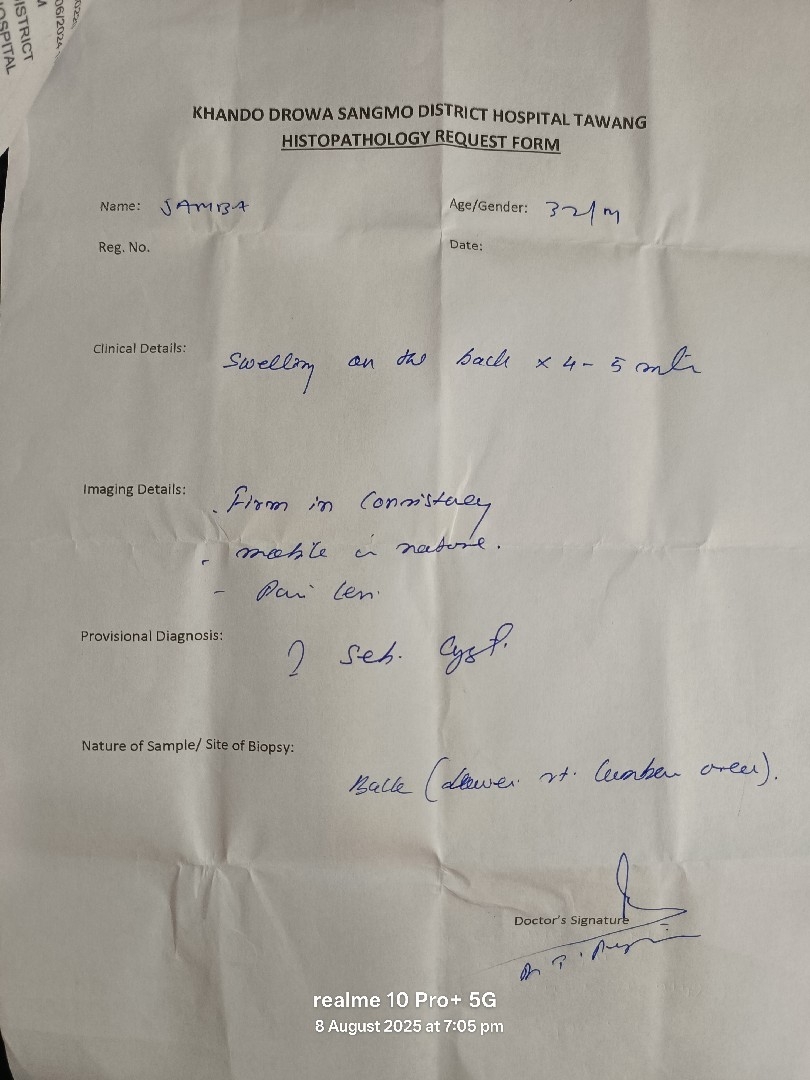 06/2024
DISTRICT
HOSPITAL
KHANDO DROWA SANGMO DISTRICT HOSPITAL TAWANG
HISTOPATHOLOGY REQUEST FORM
Name: JAMBA Age/Gender: 32/M
Reg. No. Date:
Clinical Details: Swelling on the back x 4-5 mth
Imaging Details: . Firm in Consistency
- mobile in nature.
- Pain less.
Provisional Diagnosis: ? Seb. Cyst.
Nature of Sample/ Site of Biopsy:
Back (Lower rt. lumbar area).
Doctor's Signature
Dr.
realme 10 Pro+ 5G
8 August 2025 at 7:05 pm